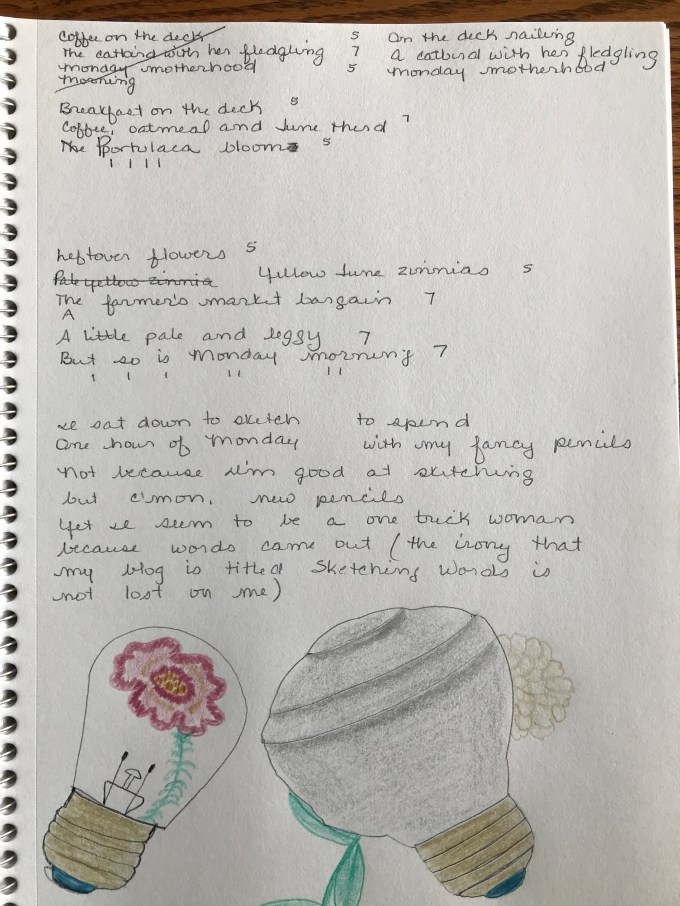 Coffee on the deck 5 On the deck railing
The catbird with her fledgling 7 A catbird with her fledgling
Monday motherhood 5 Monday motherhood
Morning
Breakfast on the deck 5
Coffee, oatmeal and June third 7
The Portulaca blooms 5
Leftover flowers 5
Pale yellow zinnia Yellow June zinnias 5
The farmer's market bargain 7
A
A little pale and leggy 7
But so is Monday morning 7
I sat down to sketch to spend
One hour of Monday with my fancy pencils
Not because I'm good at sketching
but c'mon, new pencils
Yet I seem to be a one trick woman
because words came out (the irony that
my blog is titled Sketching Words is
not lost on me)